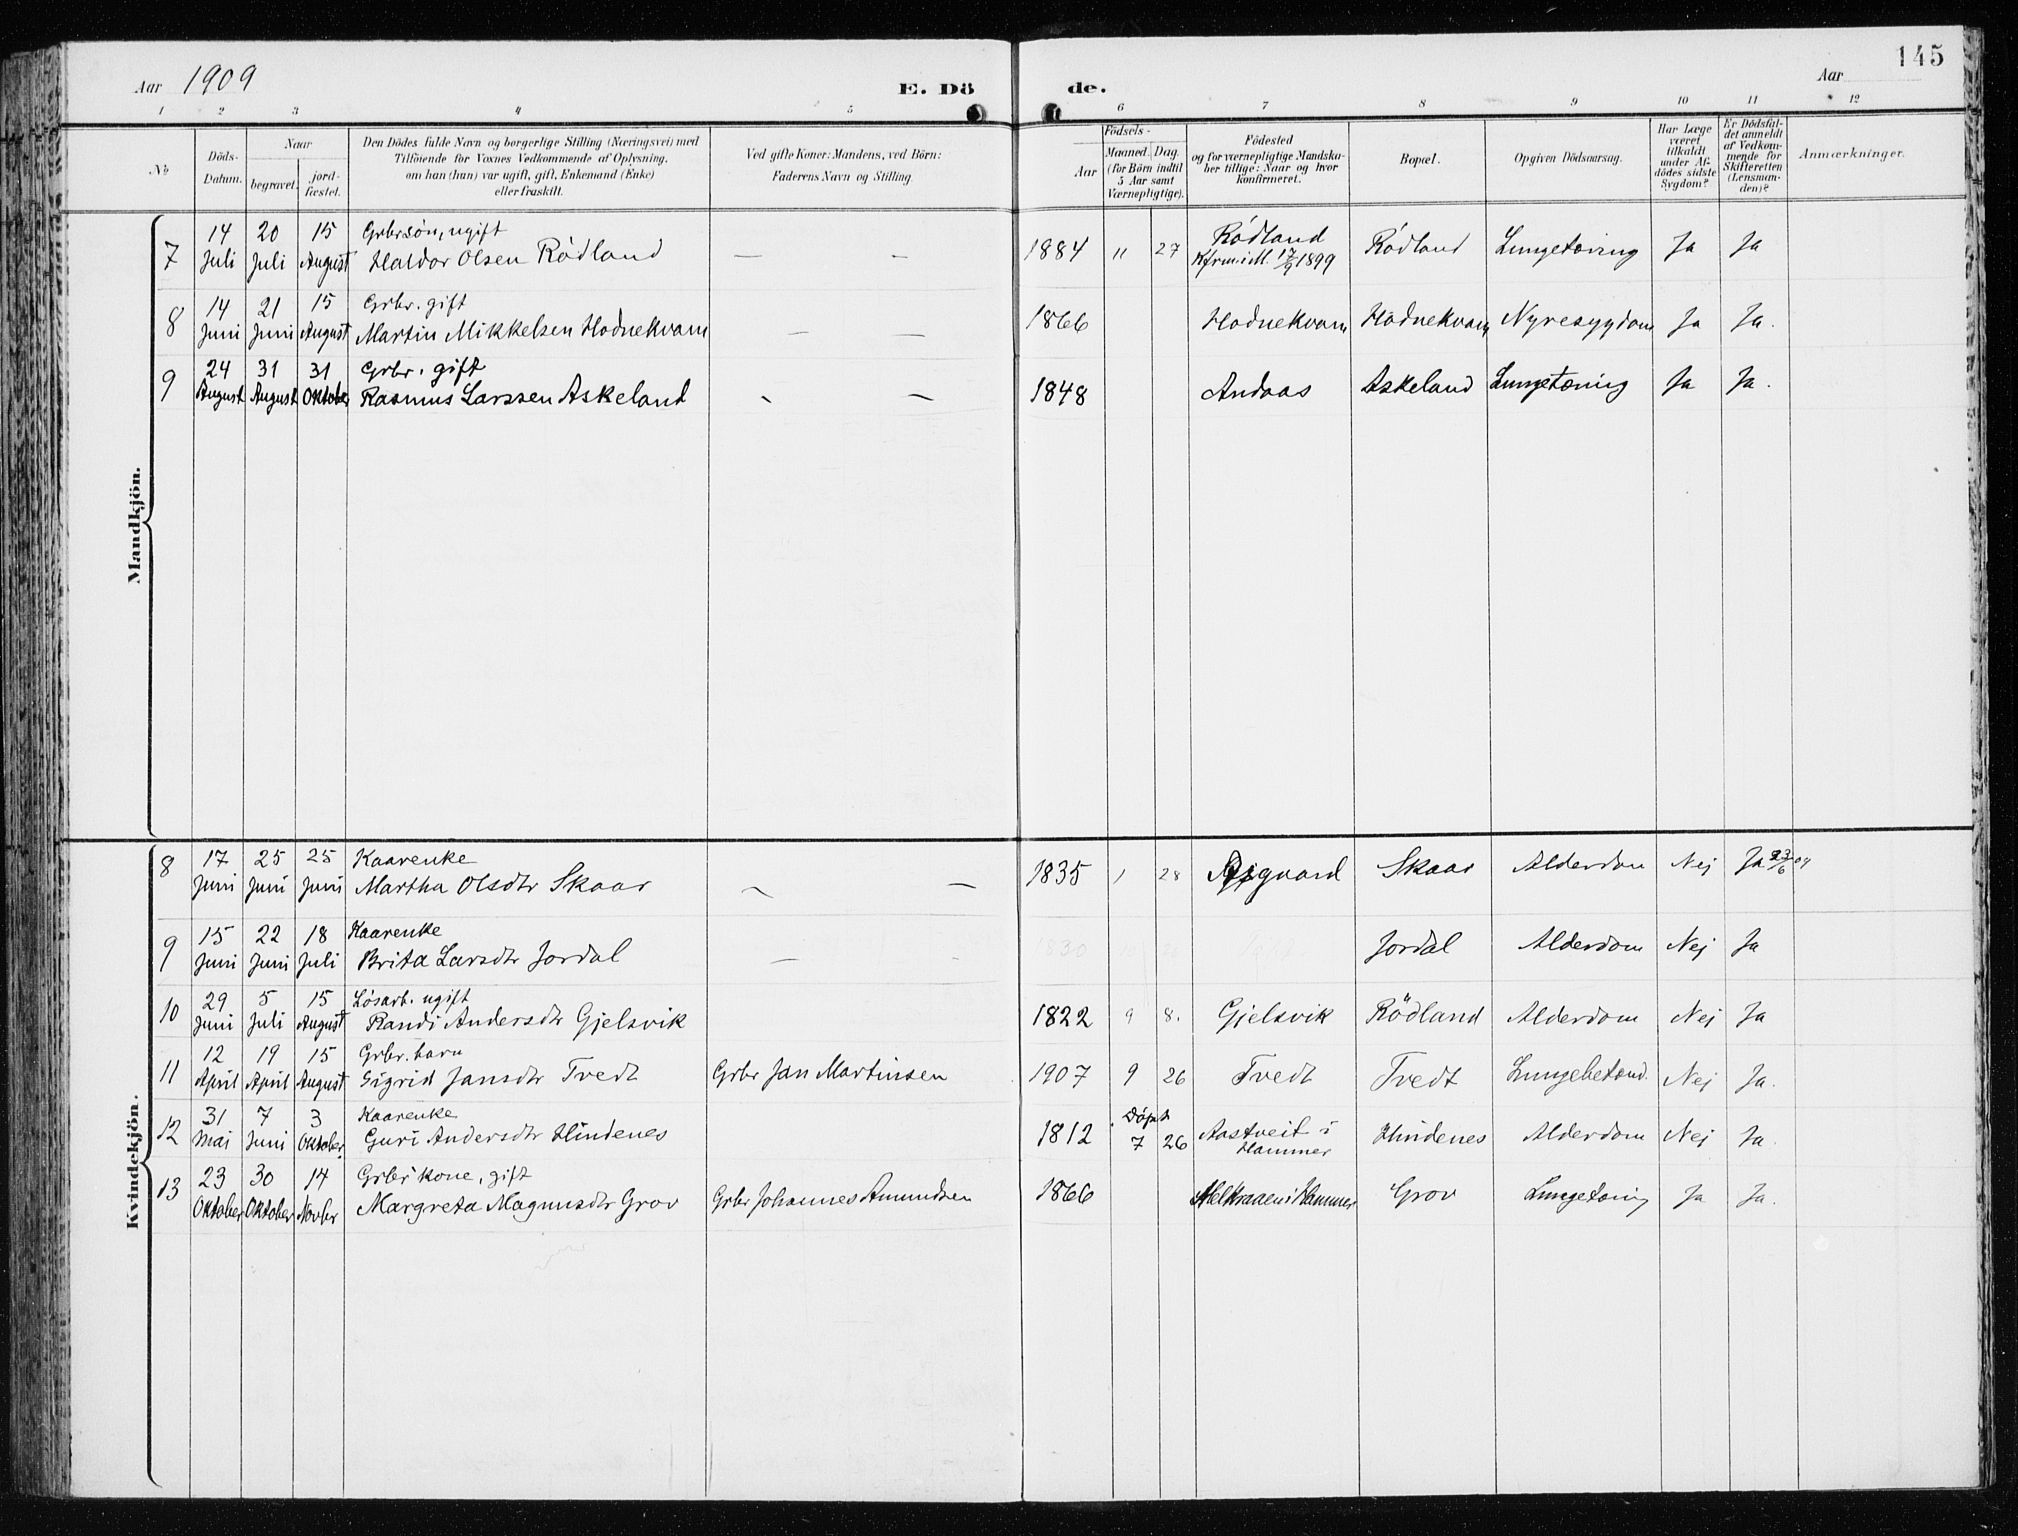 145
Aar 1909
E. Dö
de.
Aar
1 2 3 4 5 6 7 8 9 10 11 12
No
Döds-
Datum.
Naar
begravet.
jord-
fæstet.
Den Dödes fulde Navn og borgerlige Stilling (Næringsvei) med
Tilföiende for Voxnes Vedkommende af Oplysning,
om han (hun) var ugift, gift, Enkemand (Enke)
eller fraskilt.
Ved gifte Koner: Mandens, ved Börn:
Faderens Navn og Stilling.
Födsels-
Aar
Maaned. Dag.
(for Börn indtil
5 Aar samt
Værnepligtige).
Födested
og for værnepligtige Mandska-
ber tillige: Naar og hvor
konfirmeret.
Bopæl.
Opgiven Dödsaarsag.
Har Læge
været
tilkaldt
under Af-
dödes sidste
Sygdom?
Er Dödsfal-
det anmeldt
af Vedkom-
mende for
Skifteretten
(Lensman-
den)?
Anmærkninger.
Mandkjön.
7 14 Juli 20 Juli 15 August Grbrsön, ugift
Haldor Olsen Rödland — — 1884 11 27 Rödland
Kfrm. i M. 17/9 1899 Rödland Lungetæring Ja Ja
8 14 Juni 21 Juni 15 August Grbr. gift
Martin Mikkelsen Hodnekvam — — 1866 Hodnekvam Hodnekvam Nyresygdom Ja Ja.
9 24 August 31 August 31 Oktober Grbr. gift
Rasmus Larssen Askeland — — 1848 Andaas Askeland Lungetæring Ja Ja.
Kvindekjön.
8 17 Juni 25 Juni 25 Juni Kaarenke
Martha Olsdtr Skaar — — 1835 1 28 Skaar Alderdom Nej Ja 23/6 09
9 15 Juni 22 Juni 18 Juli Kaarenke
Brita Larsdtr Jordal — - 1830 Jordal Alderdom Nej Ja
10 29 Juni 5 Juli 15 August Lösarb. ugift
Randi Andersdtr Gjelsvik 1822 9 8. Gjelsvik Rödland Alderdom Nej Ja
11 12 April 19 April 15 August Grbr. barn
Sigrid Jansdtr Tvedt Grbr Jan Martinsen 1907 9 26 Tvedt Tvedt Lungebetænd. Nej Ja.
12 31 Mai 7 Juni 3 Oktober Kaarenke
Guri Andersdtr Hindenes 1812 Döpt 7 26 Aastveit i
Hammer Hindenes Alderdom Nej Ja.
13 23 Oktober 30 Oktober 14 Novbr Grbr kone, gift
Margreta Magnusdtr Grov Grbr Johannes Amundsen 1866 i Hammer Grov Lungetæring Ja Ja.